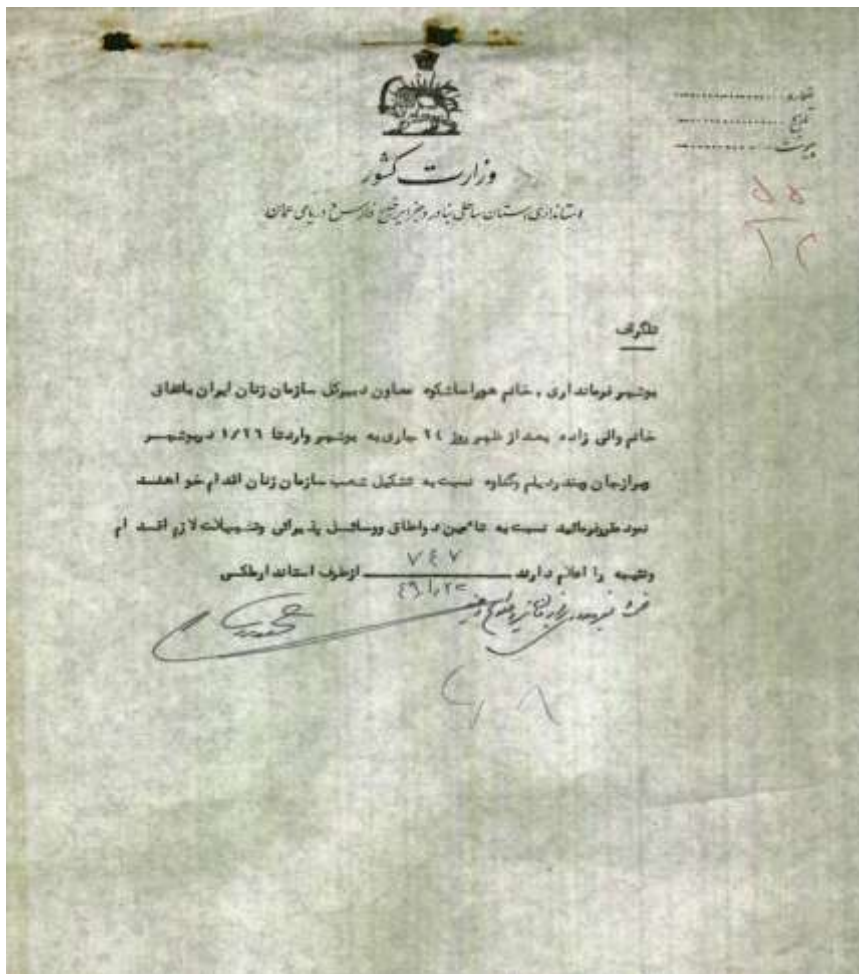 شماره
تاریخ
پیوست
وزارت کشور
استانداری استان ساحلی بنادر و جزایر خلیج فارس و دریای عمان
۵۵
۱۲
تلگراف
بوشهر فرمانداری . خانم هورا ساشکوه معاون دبیرکل سازمان زنان ایران باتفاق
خانم والی زاده بعد از ظهر روز ۲٤ جاری به بوشهر واردتا ۱/۲٦ دربوشهر
وبرازجان وبندردیلم وگناوه نسبت به تشکیل شعب سازمان زنان اقدام خواهند
نمود مقررفرمائید نسبت به تامین دواطاق ووسائل پذیرائی وتسهیلات لازم اقدام
ونتیجه را اعلام دارند ۷٤۷ ازطرف استاندار